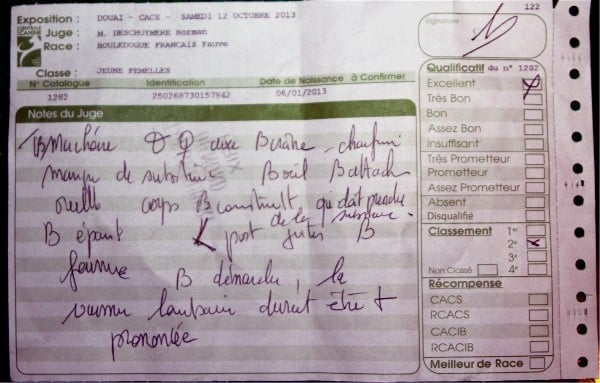 122
Exposition : DOUAI - CACS - SAMEDI 12 OCTOBRE 2013
Juge : M. DESCHUYMERE Norman
Race : BOULEDOGUE FRANCAIS Fauve
Classe : JEUNE FEMELLES
Signature :
N° Catalogue Identification Date de Naissance à Confirmer
1282 250268730157842 06/01/2013
Notes du Juge
TB Machoire
manque de substance Bon
oreille corps B construit qui doit prendre
de la substance.
B épaule port B
forme B démarche, la
lombaire devrait être +
prononcée
Qualificatif du n° 1282
Excellent
Très Bon
Bon
Assez Bon
Insuffisant
Très Prometteur
Prometteur
Assez Prometteur
Absent
Disqualifié
Classement 1er
2e x
3e
Non Classé 4e
Récompense
CACS
RCACS
CACIB
RCACIB
Meilleur de Race